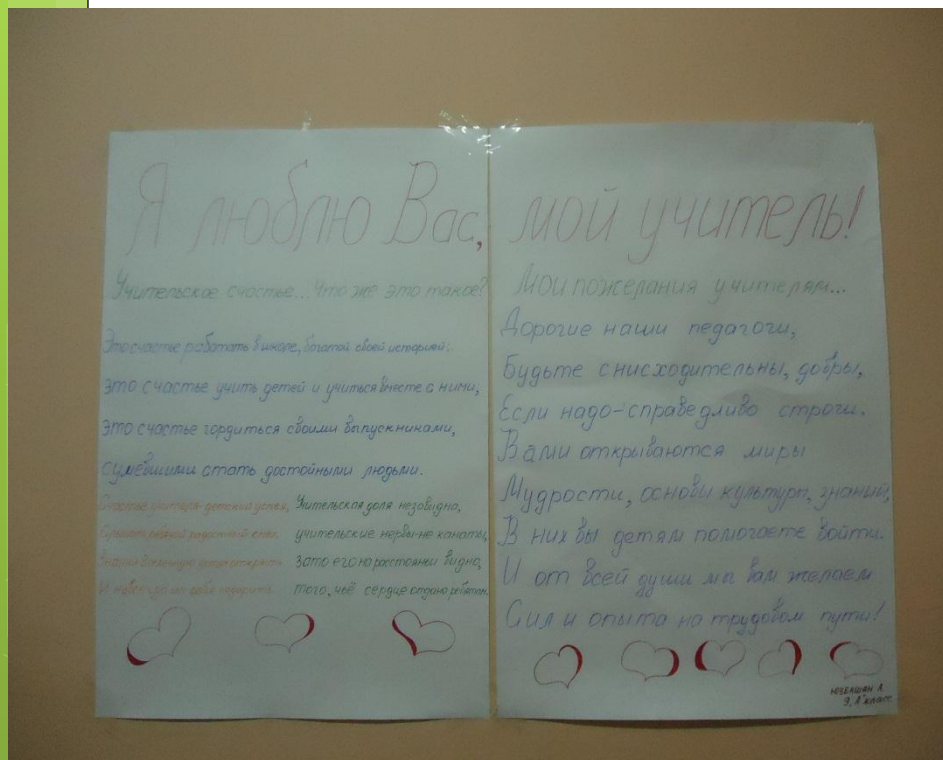 Я люблю Вас,
Учительское счастье... Что же это такое?
Это счастье работать в школе, богатой своей историей.
Это счастье учить детей и учиться вместе с ними,
Это счастье гордиться своими выпускниками,
сумевшими стать достойными людьми.
Счастье учитель детский
радостный смех,
открыть
И навек им себя подарить.
Учительская доля незавидна,
учительские нервы не канаты,
Зато его на расстоянии видно,
того, чьё сердце отдано ребятам.
мой учитель!
Мои пожелания учителям...
Дорогие наши педагоги,
Будьте снисходительны, добры,
Если надо-справедливо строги.
Вами открываются миры
Мудрости, основы культуры, знаний,
В них вы детям помогаете войти.
И от всей души мы вам желаем
Сил и опыта на трудовом пути!
9 "А" класс